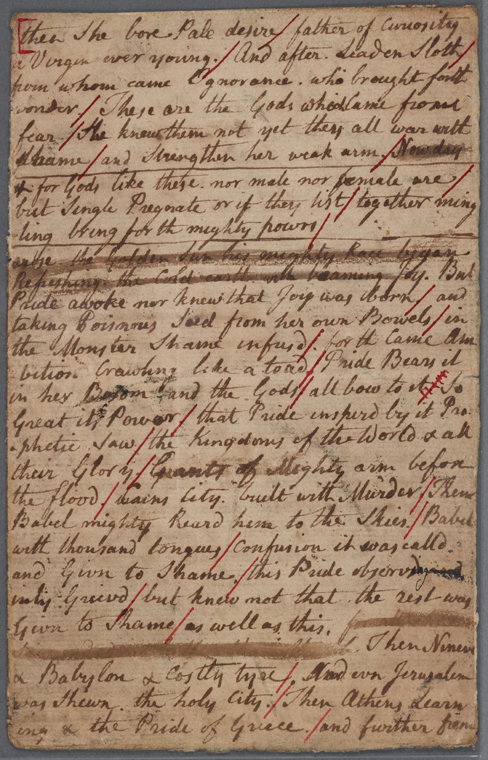 then She bore Pale desire / father of Curiosity
a Virgin ever young. / And after. Leaden Sloth /
from whom came Ignorance. who brought forth
wonder / These are the Gods which came from
fear. / She knew them not yet they all war with
Shame / and Strengthen her weak arm /
& for Gods like these. nor male nor female are /
but Single Pregnate or if they list / together ming
-ling bring forth mighty powrs /
arose the Golden Sun his mighty Race began
Refreshing the Cold earth with beaming Joy. But
Pride awoke nor knew that Joy was born / and
taking Poisnous Seed from her own Bowels / in
the Monster Shame infusd. / forth Came Am
bition Crawling like a toad / Pride Bears it
in her Bosom and the Gods / all bow to it. So
Great its Power / that Pride inspird by it Pro
-phetic Saw / the Kingdoms of the World & all
their Glory. / Giants of Mighty arm before
the flood / Cains City. built with Murder / Then
Babel mighty Reard him to the Skies. / Babel
with thousand tongues / Confusion it was calld.
and Givn to Shame. / this Pride observing
inly Grievd / but knew not that. the rest was
Givn to Shame / as well as this.
Then Nineva
& Babylon & Costly tyre / And evn Jerusalem
was Shewn. the holy City. / Then Athens Learn
ing & the Pride of Greece. / and further from